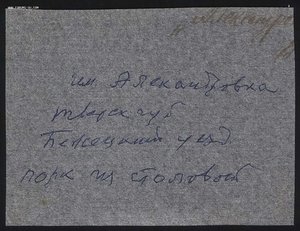 им. Александровка
тверск губ
Бежецкий уезд
парк из столовой